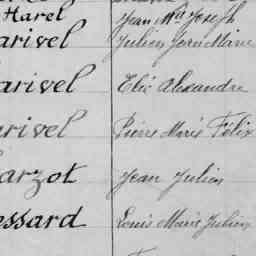 Harel Jean M.ie Joseph
arivel Julien Jean Marie
arivel Elie Alexandre
arivel Pierre Marie Félix
arzot Jean Julien
essard Louis Marie Julien